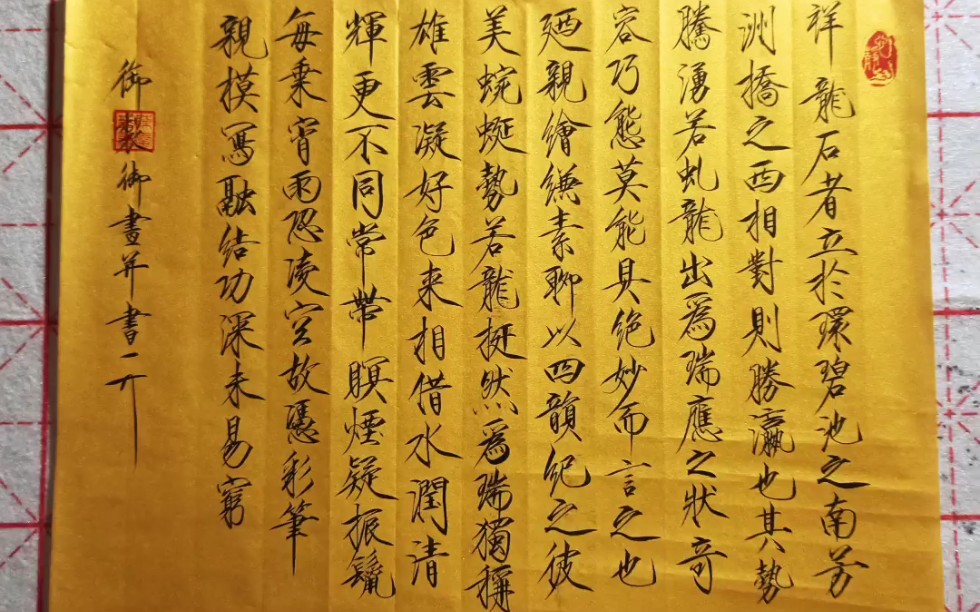 祥龍石者立於環碧池之南芳
洲橋之西相對則勝瀛也其勢
騰湧若虬龍出爲瑞應之狀奇
容巧態莫能具絶妙而言之也
廼親繪縑素聊以四韻紀之彼
美蜿蜒勢若龍挺然爲瑞獨稱
雄雲凝好色来相借水潤清
輝更不同常帶暝煙疑振鬣
每乗宵雨恐凌空故憑彩筆
親模寫融結功深未易窮
御製御畫并書